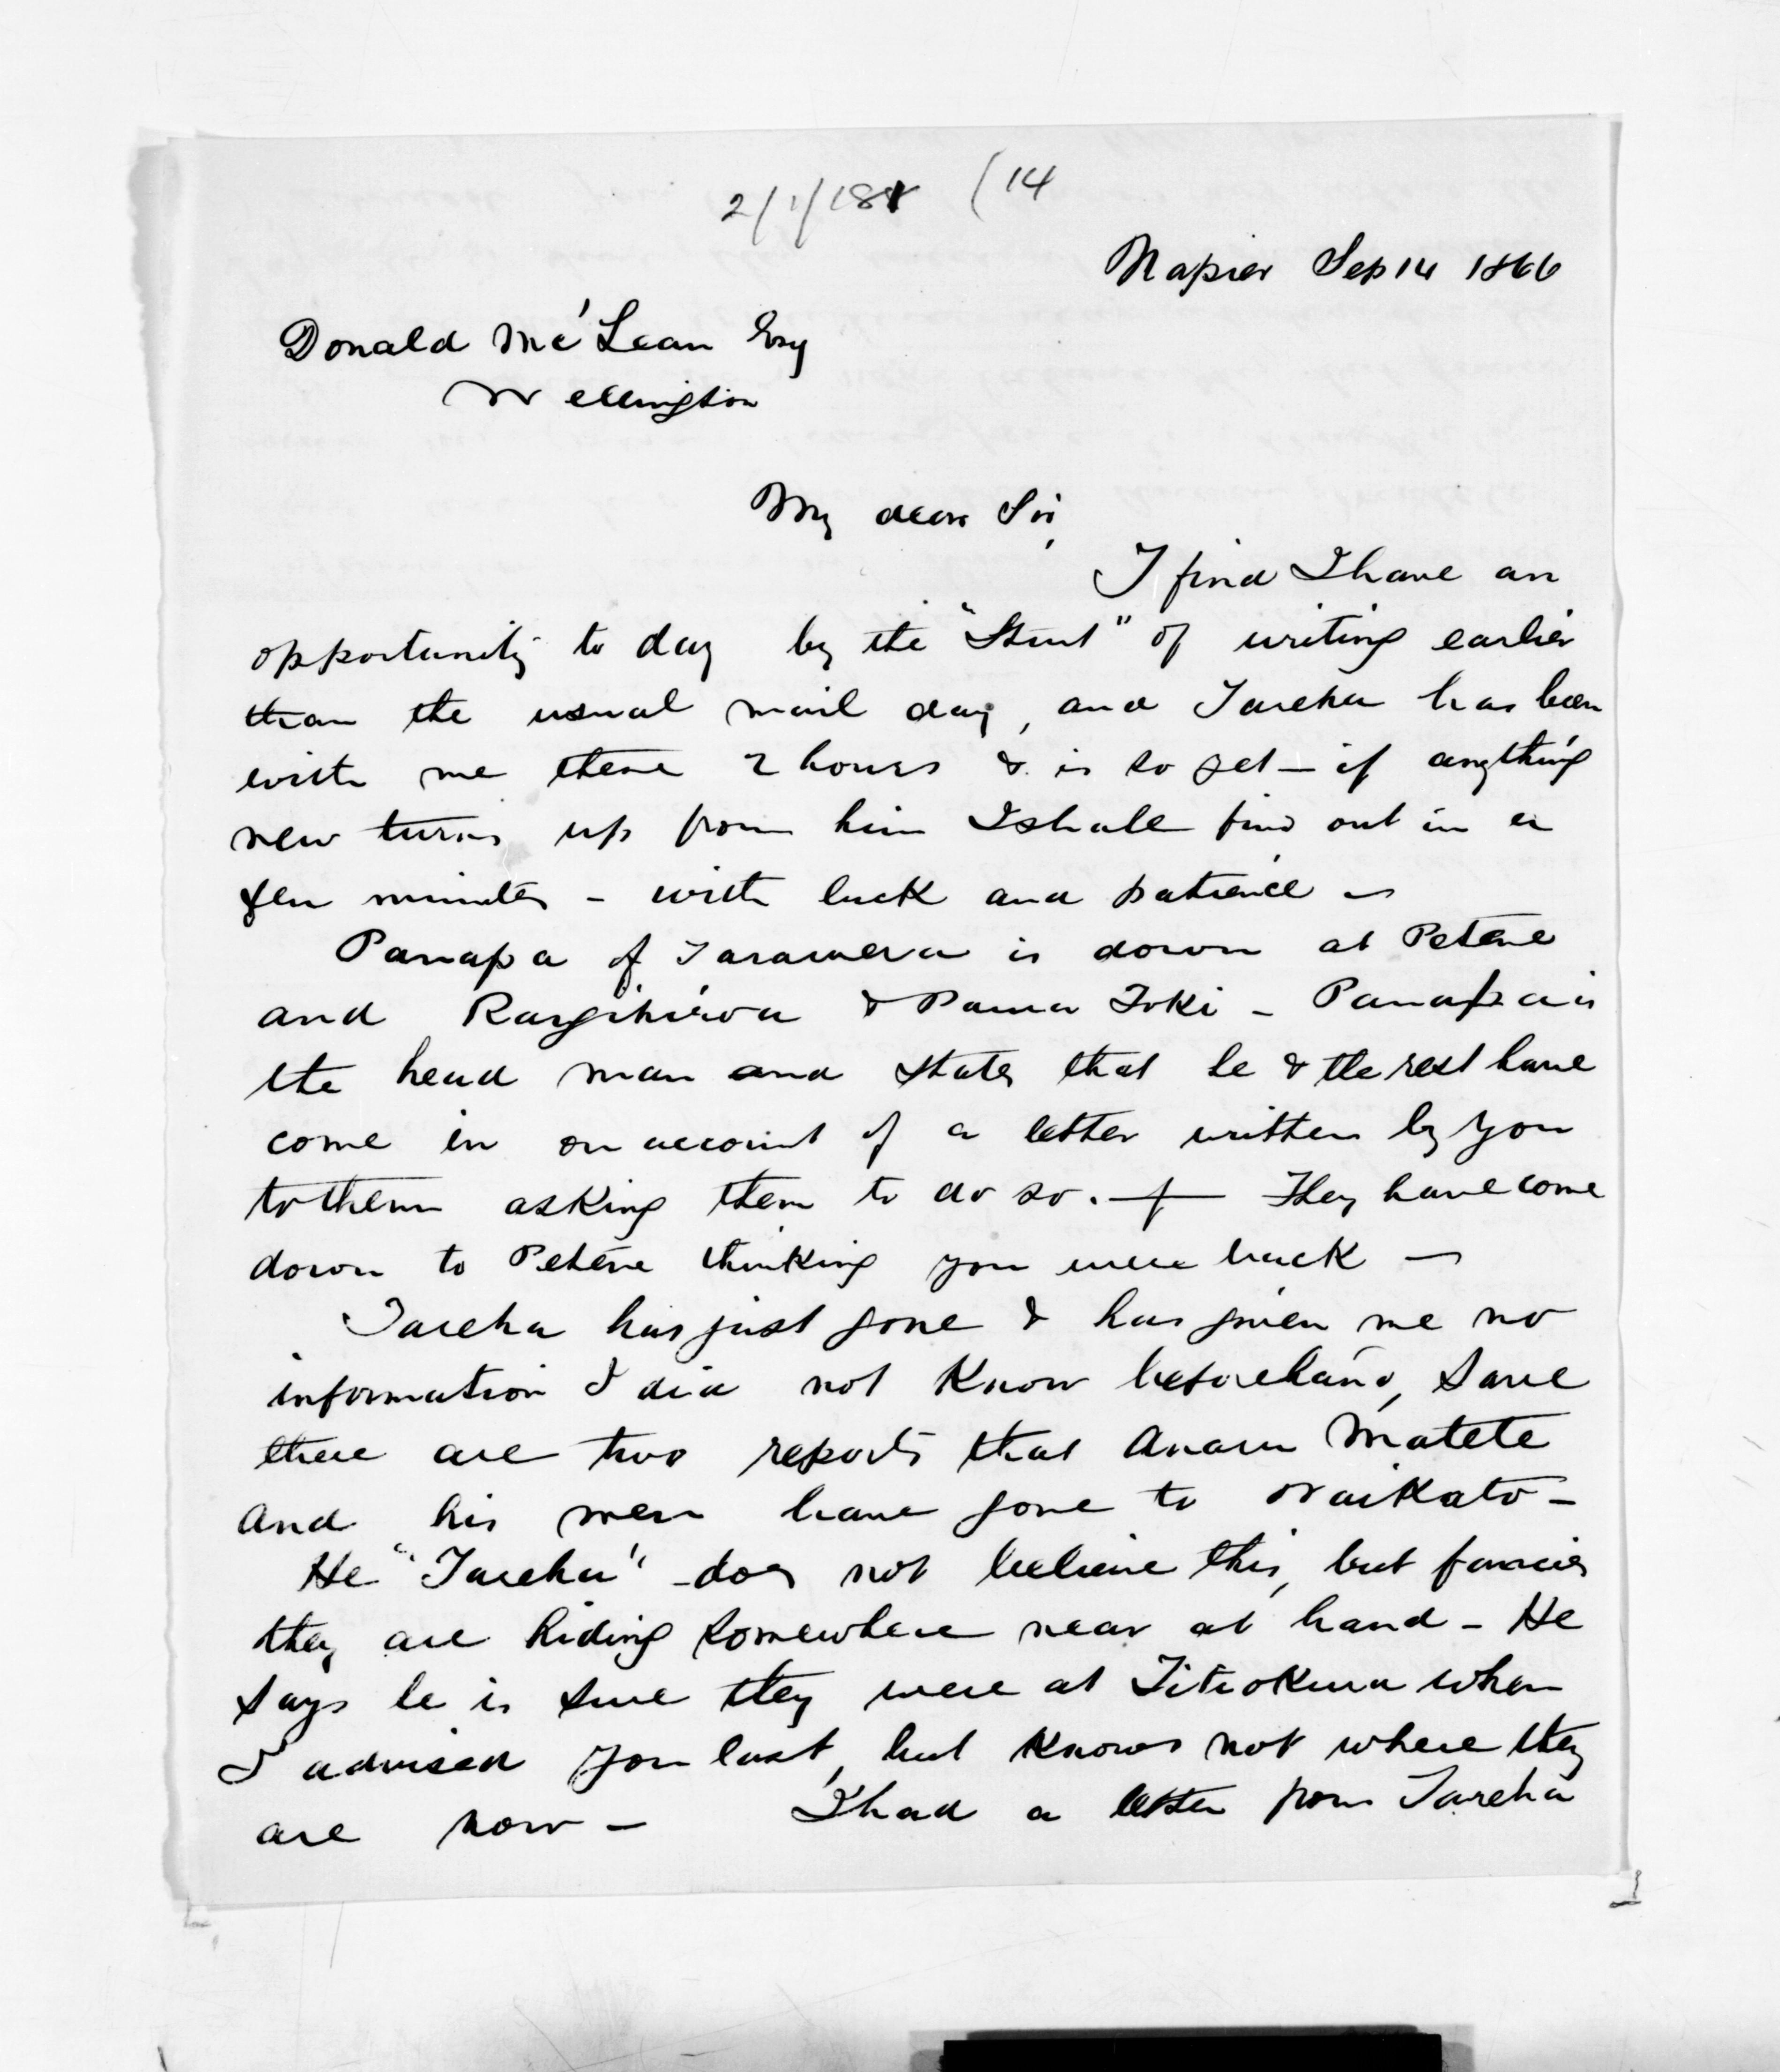 2/1/188 (14
Napier Sep 14 1866
Donald McLean Esq
Wellington
My dear Sir,
I find I have an
opportunity to day by the "Sturt" of writing earlier
than the usual mail day, and Tareha has been
with me these 2 hours & is so yet — if anything
new turns up from him I shall find out in a
few minutes - with luck and patience —
Panapa of Tarawera is down at Petane
and Rangihiroa & Paora Toki - Panapa is
the head man and states that he & the rest have
come in on account of a letter written by you
to them asking them to do so. — They have come
down to Petane thinking you were back —
Tareha has just gone & has given me no
information I did not know beforehand, save
there are two reports that Anaru Matete
and his men have gone to Waikato -
He "Tareha" - does not believe this, but fancies
they are hiding somewhere near at hand - He
says he is sure they were at Titiokura when
I advised you last, but knows not where they
are now - I had a letter from Tareha